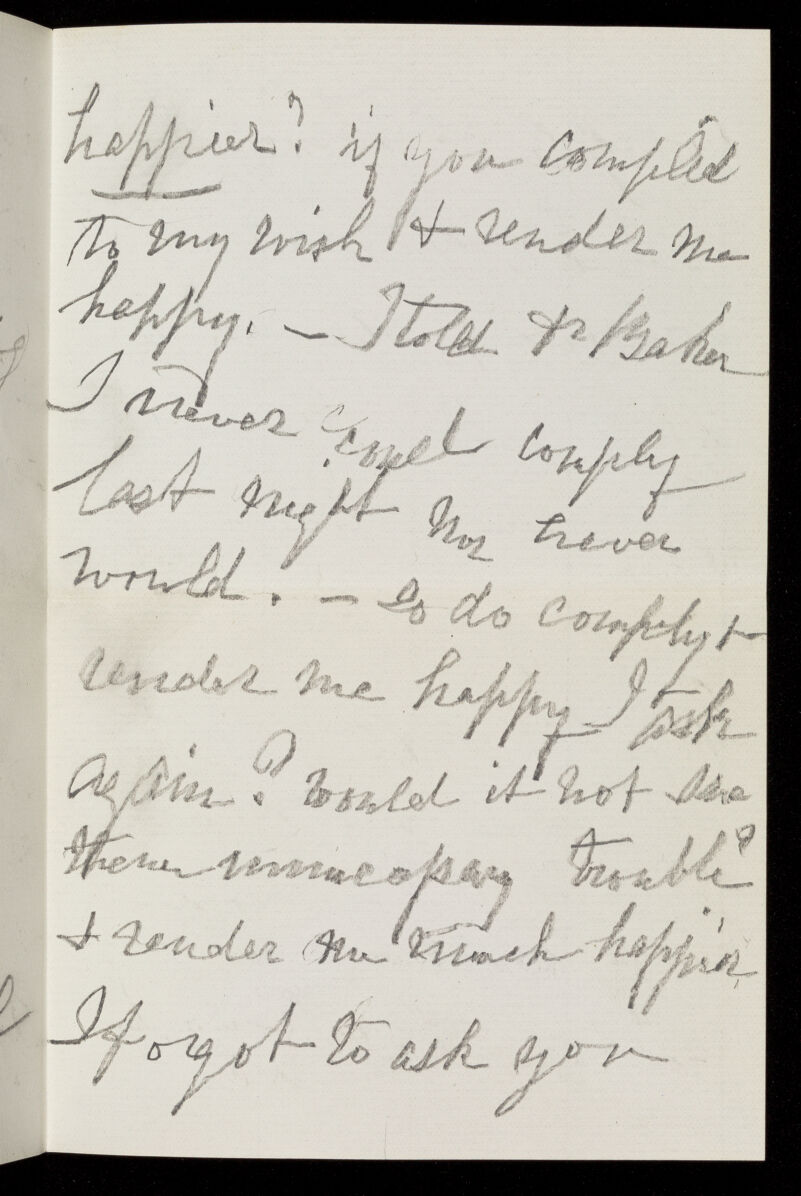 happier? if you complied
to my wish & render me
happy. — I told Dr Baker
I never could comply
last night nor never
would. — So do comply &
render me happy I ask
again? would it not save
them unnecessary trouble?
& render me much happier,
I forgot to ask you